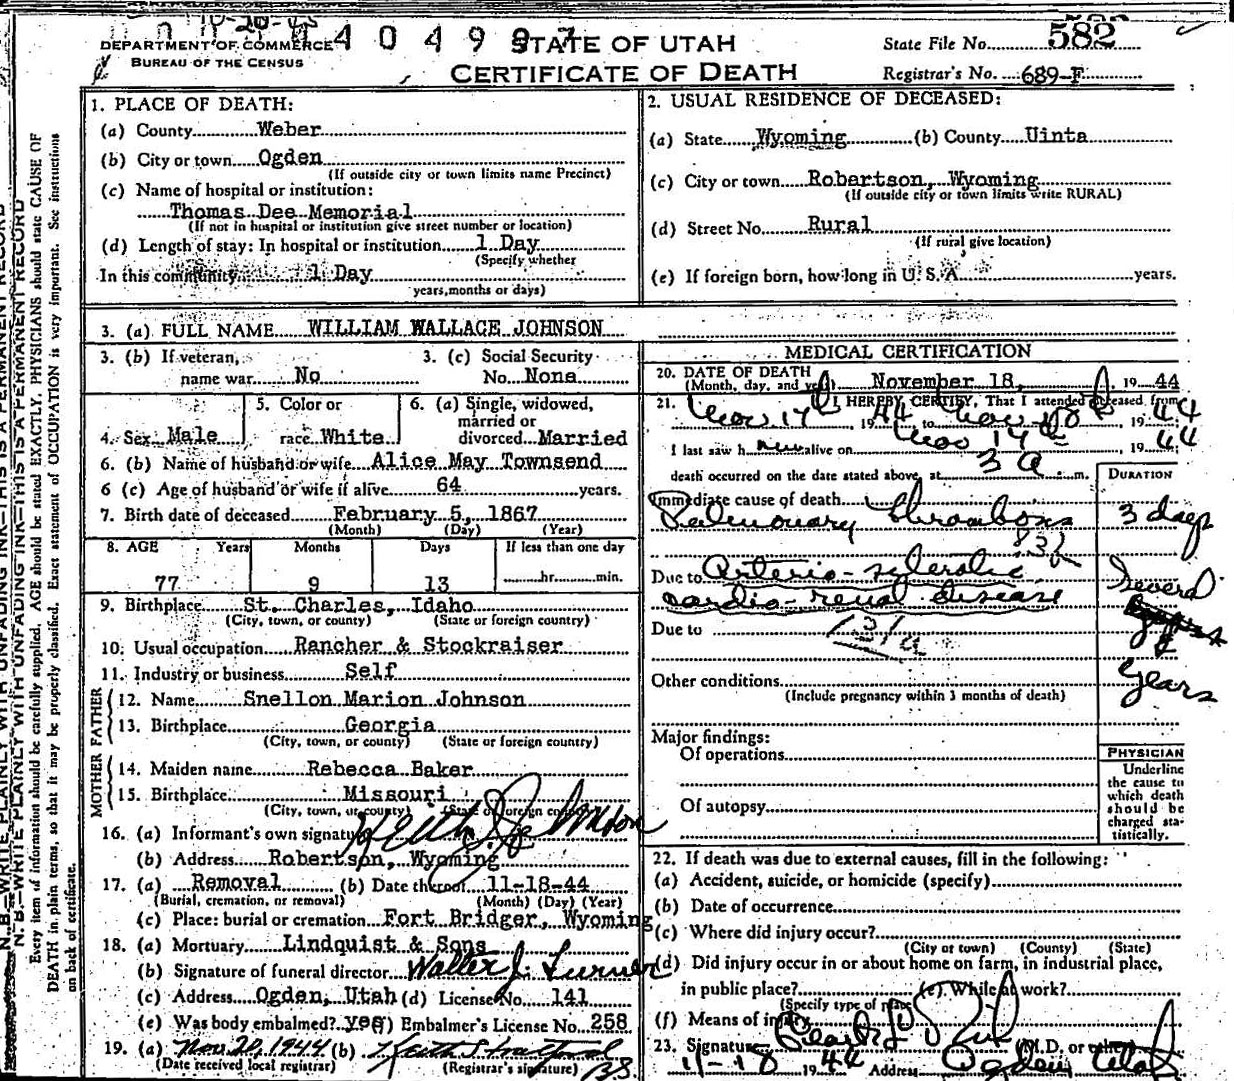 10-20-45
0404997
DEPARTMENT OF COMMERCE
BUREAU OF THE CENSUS
STATE OF UTAH
CERTIFICATE OF DEATH
State File No. 582
Registrar's No. 689-F
1. PLACE OF DEATH:
(a) County Weber
(b) City or town Ogden
(If outside city or town limits name Precinct)
(c) Name of hospital or institution:
Thomas Dee Memorial
(If not in hospital or institution give street number or location)
(d) Length of stay: In hospital or institution 1 Day
(Specify whether
In this community 1 Day
years, months or days)
2. USUAL RESIDENCE OF DECEASED:
(a) State Wyoming (b) County Uinta
(c) City or town Robertson, Wyoming
(If outside city or town limits write RURAL)
(d) Street No. Rural
(If rural give location)
(e) If foreign born, how long in U. S. A. years.
3. (a) FULL NAME WILLIAM WALLACE JOHNSON
3. (b) If veteran, name war No
3. (c) Social Security No. None
4. Sex Male
5. Color or race White
6. (a) Single, widowed, married or divorced Married
6. (b) Name of husband or wife Alice May Townsend
6 (c) Age of husband or wife if alive 64 years.
7. Birth date of deceased February 5, 1867
(Month) (Day) (Year)
8. AGE Years Months Days If less than one day
77 9 13 hr. min.
9. Birthplace St. Charles, Idaho
(City, town, or county) (State or foreign country)
10. Usual occupation Rancher & Stockraiser
11. Industry or business Self
FATHER
12. Name Snellon Marion Johnson
13. Birthplace Georgia
(City, town, or county) (State or foreign country)
MOTHER
14. Maiden name Rebecca Baker
15. Birthplace Missouri
(City, town, or county) (State or foreign country)
16. (a) Informant's own signature Keith S. Johnson
(b) Address Robertson, Wyoming
17. (a) Removal (b) Date thereof 11-18-44
(Burial, cremation, or removal) (Month) (Day) (Year)
(c) Place: burial or cremation Fort Bridger, Wyoming
18. (a) Mortuary Lindquist & Sons
(b) Signature of funeral director Walter J. Turner
(c) Address Ogden, Utah (d) License No. 141
(e) Was body embalmed? yes Embalmer's License No. 258
19. (a) Nov. 20, 1944 (b) Keith Stratford
(Date received local registrar) (Registrar's signature)
MEDICAL CERTIFICATION
20. DATE OF DEATH
(Month, day, and year) November 18, 19 44
21. I HEREBY CERTIFY, That I attended deceased from
Nov 17th 19 44 to Nov 18th 19 44
I last saw him alive on Nov 17th 19 44
death occurred on the date stated above, at 3 a. m.
DURATION
Immediate cause of death
Pulmonary thrombosis 3 days
Due to Arterio-sclerotic
cardio-renal disease
Several
years
Due to
131a
Other conditions
(Include pregnancy within 3 months of death)
Major findings:
Of operations
Of autopsy
PHYSICIAN
Underline the cause to which death should be charged statistically.
22. If death was due to external causes, fill in the following:
(a) Accident, suicide, or homicide (specify)
(b) Date of occurrence
(c) Where did injury occur?
(City or town) (County) (State)
(d) Did injury occur in or about home on farm, in industrial place,
in public place? (e) While at work?
(Specify type of place)
(f) Means of injury
23. Signature (M.D. or other)
11-18 19 44 Address Ogden Utah
N. B.—WRITE PLAINLY WITH UNFADING INK—THIS IS A PERMANENT RECORD
Every item of information should be carefully supplied. AGE should be stated EXACTLY. PHYSICIANS should state CAUSE OF
DEATH in plain terms, so that it may be properly classified. Exact statement of OCCUPATION is very important. See instructions
on back of certificate.